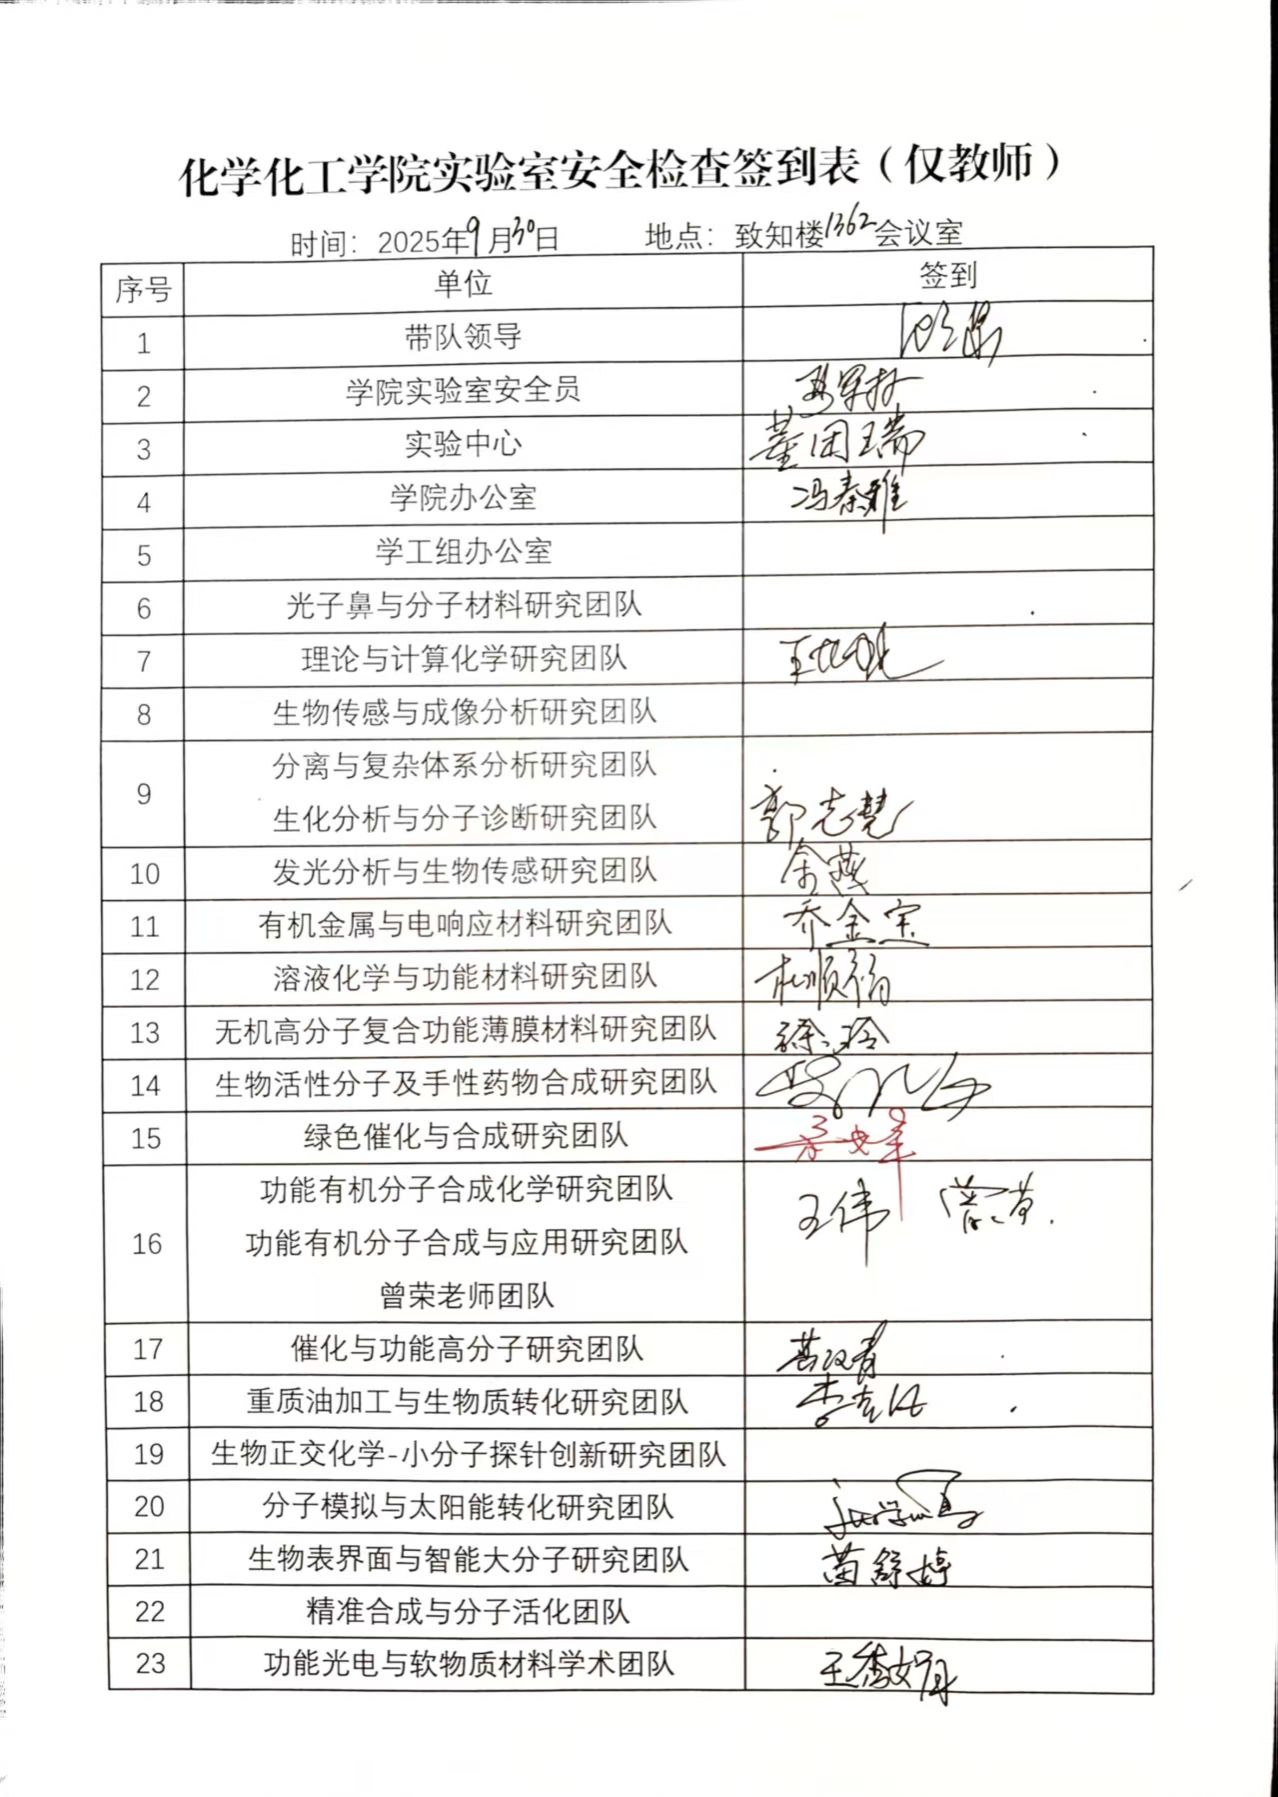 化学化工学院实验室安全检查签到表（仅教师）
时间：2025年9月30日 地点：致知楼1362会议室
序号 单位 签到
1 带队领导
2 学院实验室安全员
3 实验中心 董团瑞
4 学院办公室 冯秦雅
5 学工组办公室
6 光子鼻与分子材料研究团队
7 理论与计算化学研究团队
8 生物传感与成像分析研究团队
9 分离与复杂体系分析研究团队
生化分析与分子诊断研究团队 郭志慧
10 发光分析与生物传感研究团队 余燕
11 有机金属与电响应材料研究团队 乔金宝
12 溶液化学与功能材料研究团队
13 无机高分子复合功能薄膜材料研究团队 徐玲
14 生物活性分子及手性药物合成研究团队
15 绿色催化与合成研究团队
16 功能有机分子合成化学研究团队
功能有机分子合成与应用研究团队 王伟
曾荣老师团队
17 催化与功能高分子研究团队
18 重质油加工与生物质转化研究团队
19 生物正交化学-小分子探针创新研究团队
20 分子模拟与太阳能转化研究团队
21 生物表界面与智能大分子研究团队 苗舒婷
22 精准合成与分子活化团队
23 功能光电与软物质材料学术团队